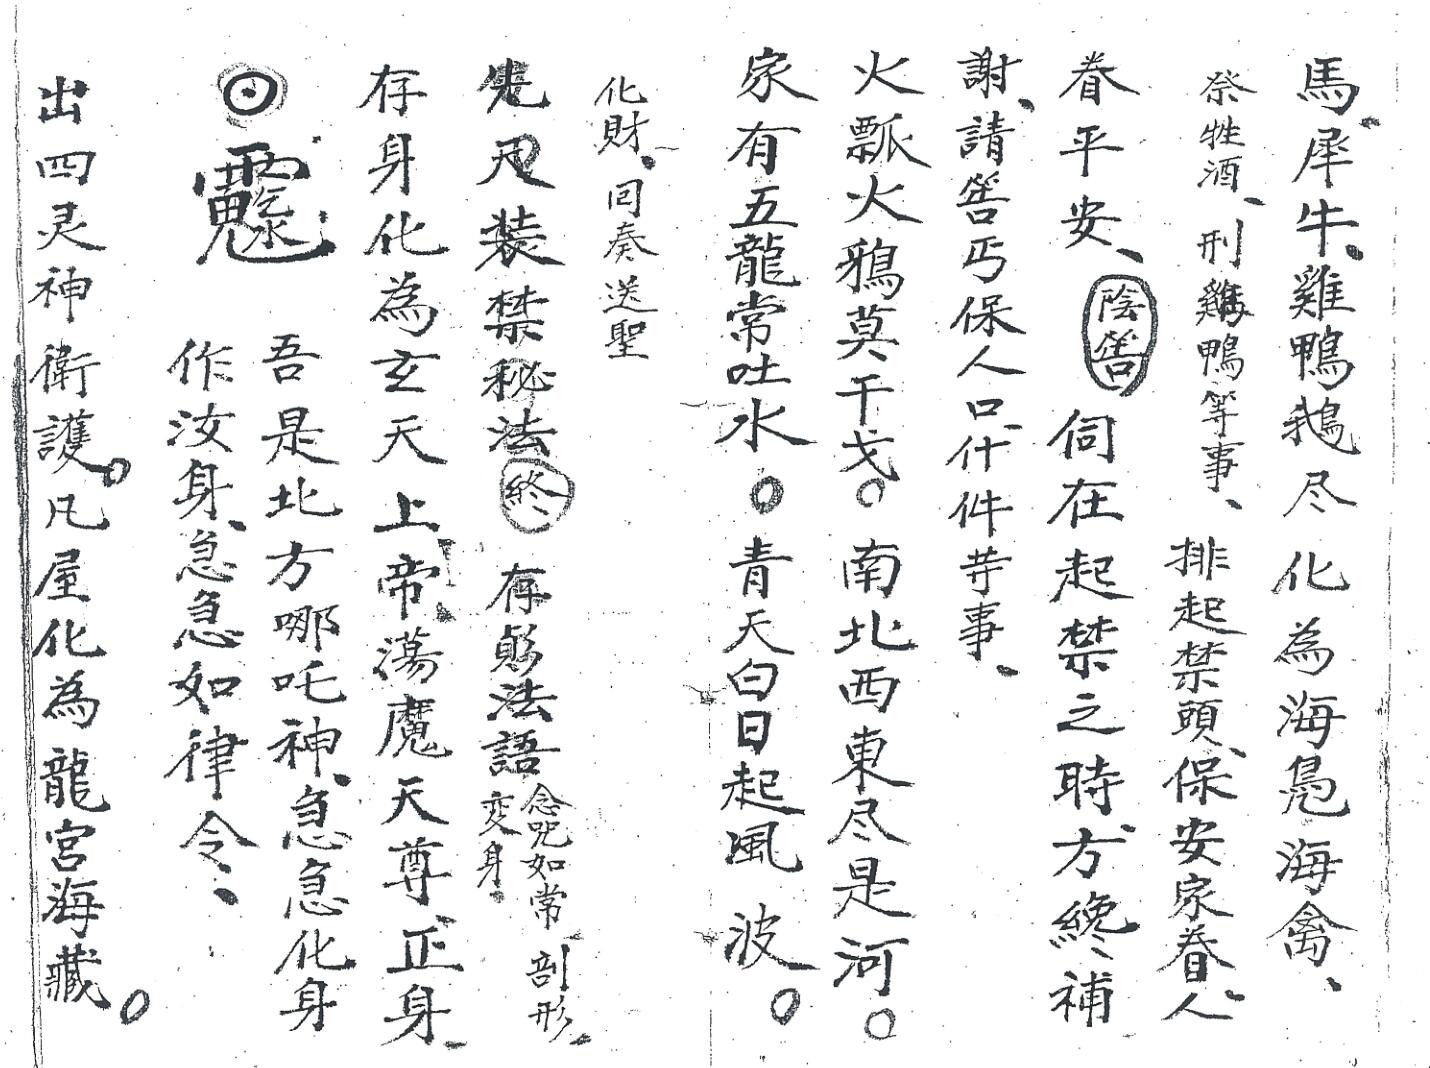 馬、犀牛、雞鴨鵝尽化為海鳧海禽、
祭牲酒、刑雞鴨等事、排起禁頭、保安家眷人、
眷平安、陰筶伺在起禁之時、方纔補
謝、請筶丐保人口什件䒭事、
火瓢火鴉莫干戈。南北西東尽是河。
家有五龍常吐水。青天白日起風波。
化財、回奏送聖
先尺装禁秘法終存法語念咒如常剖形、
变身、
存身化為玄天上帝蕩魔天尊正身、
吾是北方哪吒神、急急化身
作汝身、急急如律令、
出四灵神衛護。凡屋化為龍宮海藏。